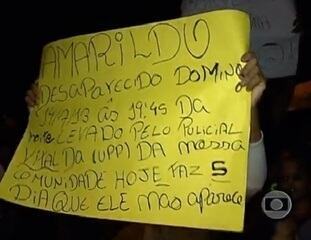 AMARILDO
DESAPARECIDO DOMING
14/7/13 ÀS 19:45 DA
NOITE LEVADO PELO POLICIAL
VITAL DA (UPP) DA NOSSA
COMUNIDADE HOJE FAZ 5
DIA QUE ELE NÃO APARECE